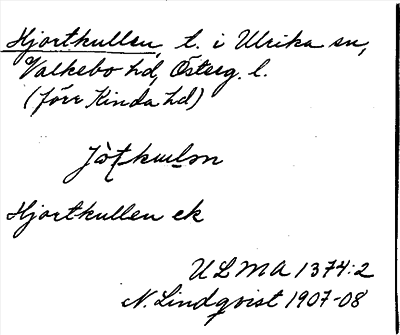 Hjortkullen, t. i Ulrika sn,
Valkebo hd, Österg. l.
(förr Kinda hd)
Hjortkullen ek
ULMA 1374:2
N. Lindqvist 1907-08